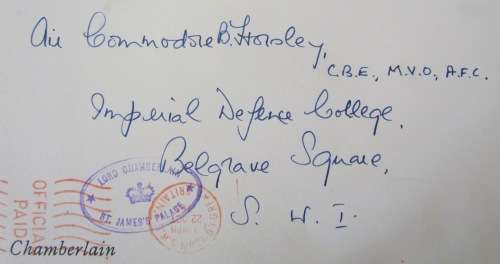 Air Commodore B. Horsley,
C.B.E., M.V.O., A.F.C.
Imperial Defence College,
Belgrave Square,
S. W. 1.
LORD CHAMBERLAIN
ST. JAMES'S PALACE
OFFICIAL
PAID
Chamberlain